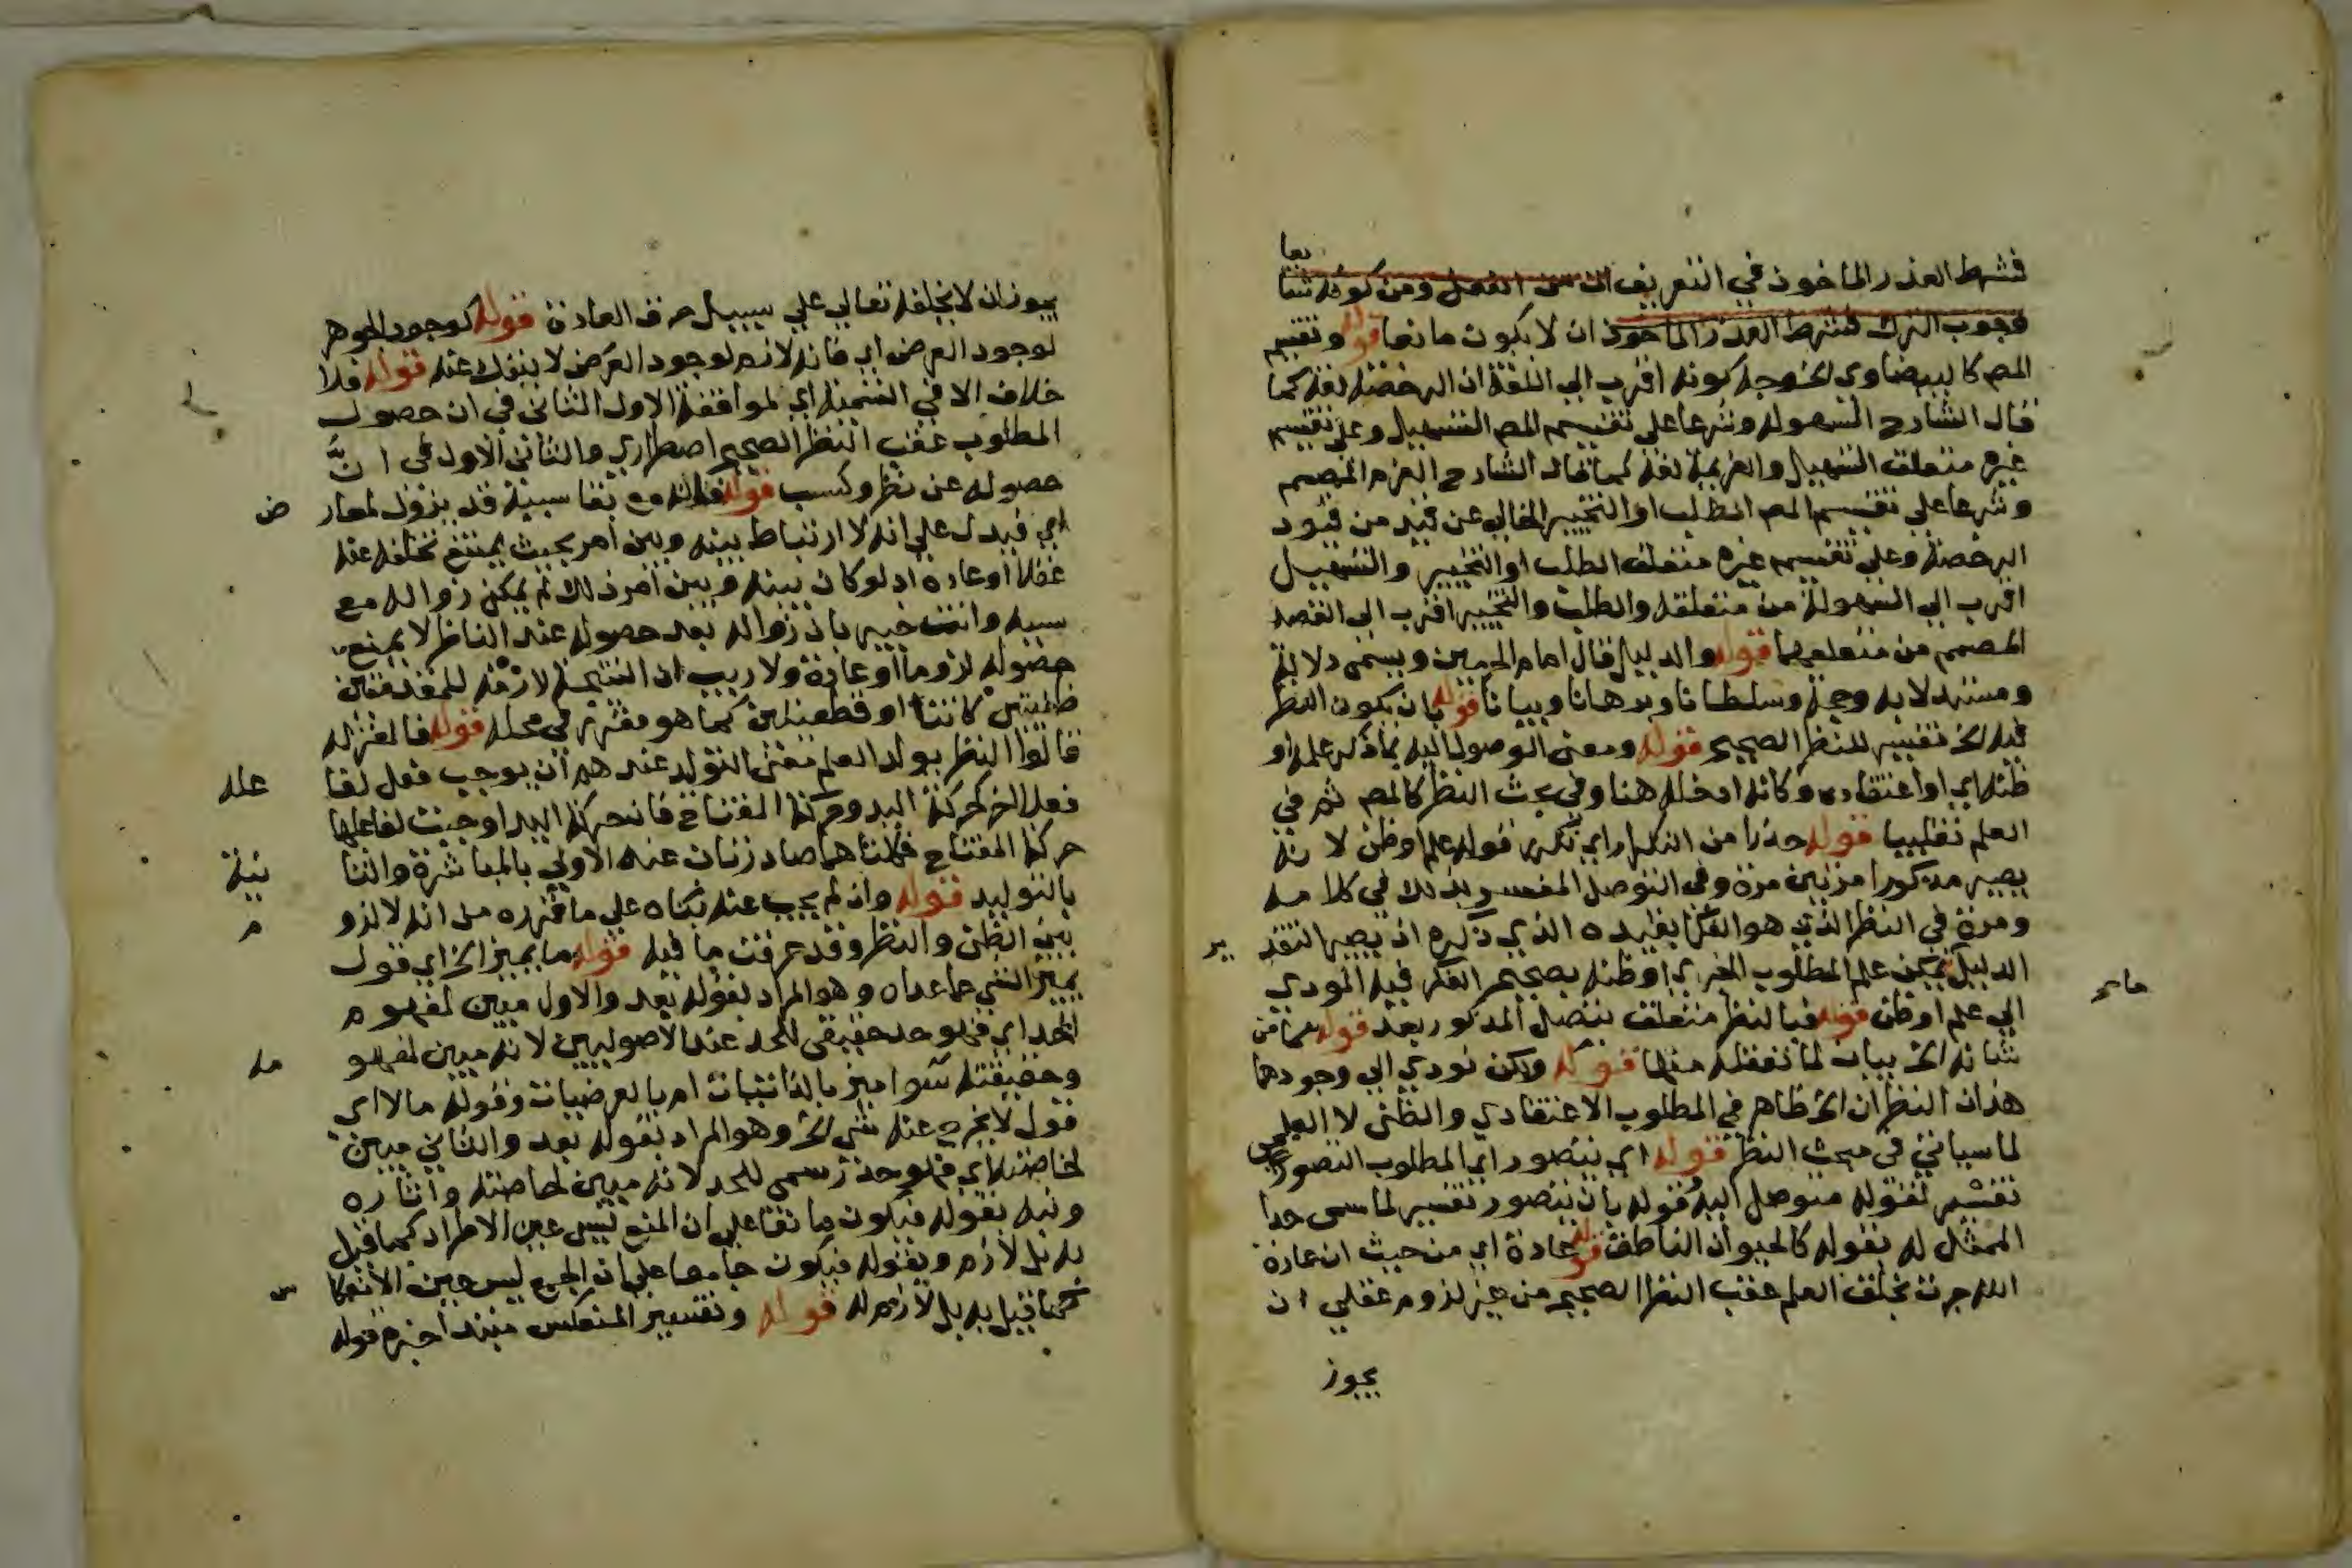 فشرط العذر الماخوذ في التعريف ان من الفعل ومن كونه شا
نعا
فجوب الترك فشرط العذر الماخوذ ان لا يكون مانعا قوله وتقسيم
المص كالبيضاوي الخ وجه كونه اقرب الي اللغة ان الرخصة لغة كما
قال الشارح السهولة وشرعا على تقسيم المص التسهيل وعلى تقسيم
غيره متعلق التسهيل والعزيمة لغة كما قال الشارح العزم المصمم
وشرعا علي تقسيم المص الطلب او التخيير الخالي عن قيد من قيود
الرخصة وعلي تقسيم غيره متعلق الطلب او التخيير والتسهيل
اقرب الي السهولة من متعلقه والطلب والتخيير اقرب الي القصد
المصمم من متعلقهما قوله والدليل قال امام الحرمين ويسمى دلالة
ومستدلا به وحجة وسلطانا وبرهانا وبيانا قوله بان يكون النظر
فيه الخ تفسير للنظر الصحيح قوله ومعنى الوصول اليه بما ذكر علمه او
ظنه اي او اعتقاده وكانه ادخله هنا وفي بحث النظر كالمص ثم في
العلم تغليبا قوله حذرا من التكرار اي تكرر قوله علم او ظن لانه
يصير مذكورا مرتين مرة وفي التوصل المفسر بذلك في كلامه
ومرة في النظر الذي هو الفكر بقيده الذي ذكره اذ يصير التقد ير
الدليل يمكن علم المطلوب الخبري او ظنه بصحيح الفكر فيه المودي
الي علم او ظن قوله فبالنظر متعلق بتصل المذكور بعد قوله مما من
شانه الخ بيان لما تعقله منها قوله ولكن تودي الي وجودهما
هذان النظران الخ ظاهر في المطلوب الاعتقادي والظني لا العلمي
لما سياتي في مبحث النظر قوله اي بتصور اي المطلوب التصور
تفسير لقوله متوصل اليه قوله بان يتصور تفسير لما سمى حدا
الممثل له بقوله كالحيوان الناطق قوله عادة اي من حيث ان عادة
الله جرت بخلق العلم عقب النظر الصحيح من غير لزوم عقلي ان
يجوز
يجوز ان لا يخلقه تعالي علي سبيل خرق العادة قوله كوجود الجوهر
لوجود العرض اي فانه لازم لوجود العرض لا ينفك عنه قوله فلا
خلاف الا في التسمية اي لموافقة الاول الثاني في ان حصول
المطلوب عقب النظر الصحيح اضطراري والثاني الاول في ان
حصوله عن نظر وكسب قوله فانه مع بقا سببه قد يزول لمعار ض
اي فيدل علي انه لا ارتباط بينه وبين امر بحيث يمتنع تخلفه عنه
عقلا او عادة اذ لو كان بينه وبين امر ذلك لم يمكن زواله مع
سببه وانت خبير بان زواله بعد حصوله عند الناظر لا يمنع
حصوله لزوما او عادة ولا ريب ان النتيجة لازمة للمقدمتين
ظنيتين كانتا او قطعيتين كما هو مقرر في محله قوله فالمعتزله
قالوا النظر يولد العلم معنى التولد عندهم ان يوجب فعل لفا عله
فعلا اخر كحركة اليد وحركة المفتاح فان حركة اليد اوجبت لفاعلها
حركة المفتاح فكلتاهما صادرتان عنه الاولي بالمباشرة والثا نية
بالتوليد قوله وان لم يجب عنه بناه علي ما قرره من انه لا لزو م
بين الظن والنظر وقد عرفت ما فيه قوله ما يميز الخ اي قول
يميز الشي عما عداه وهو المراد بقوله بعد والاول مبين لمفهوم
الحد اي فهو حد حقيقي للحد عند الاصوليين لانه مبين لمفهو مه
وحقيقته سوا ميز بالذاتيات ام بالعرضيات وقوله ما لا اي
قول لا يخرج عنه شي الخ وهو المراد بقوله بعد والثاني مبين
لخاصته اي فهو حد رسمي للحد لانه مبين لخاصته واثاره
ونبه بقوله فيكون مانعا علي ان المنع ليس عين الاطراد كما قيل
به بل لازم وبقوله فيكون جامعا علي ان الجمع ليس عين الانعكا س
كما قيل به بل لازم له قوله وتفسير المنعكس مبتدا خبره قوله